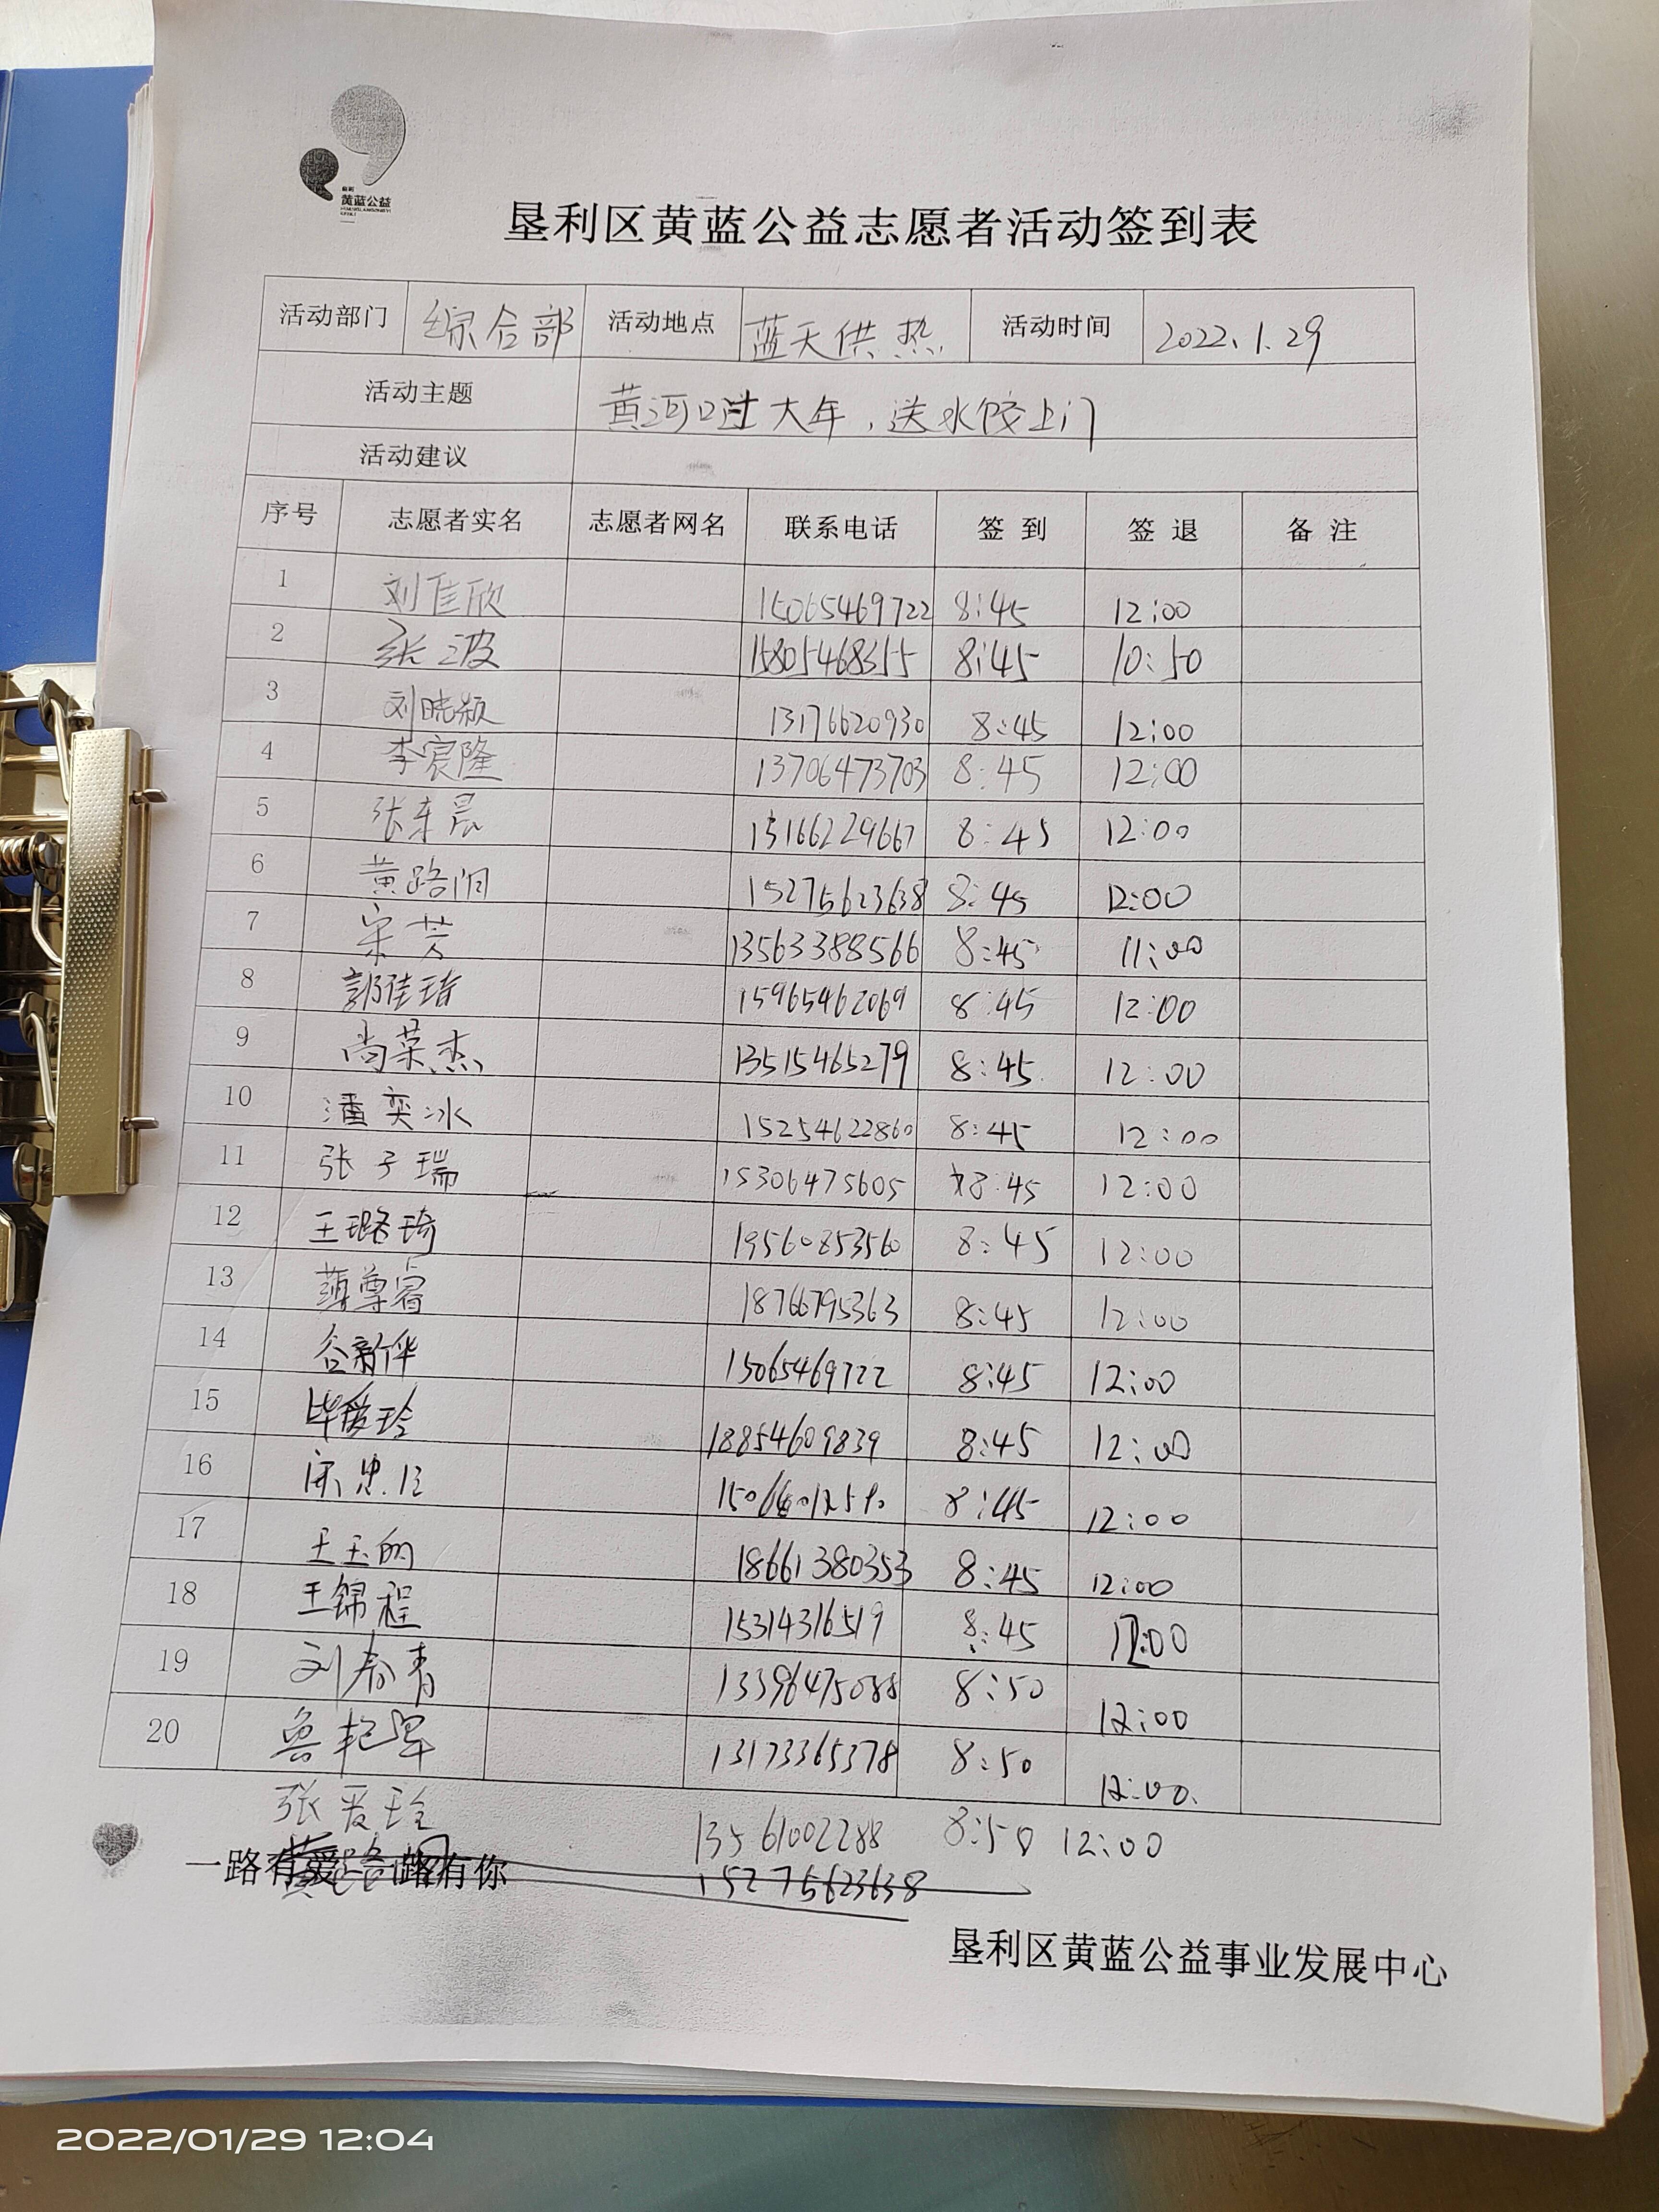 垦利
黄蓝公益
垦利区黄蓝公益志愿者活动签到表
活动部门 综合部 活动地点 蓝天供热 活动时间 2022.1.29
活动主题 黄河口过大年,送水饺上门
活动建议
序号 志愿者实名 志愿者网名 联系电话 签到 签退 备注
1 刘佳欣 15065469722 8:45 12:00
2 张波 15805468355 8:45 10:50
3 刘晓颖 13176620930 8:45 12:00
4 李宸隆 13706473703 8:45 12:00
5 张东晨 13166229667 8:45 12:00
6 黄路 15275623638 8:45 12:00
7 宋芳 13563388566 8:45 11:00
8 郭佳琦 15965462069 8:45 12:00
9 尚荣杰 13515465279 8:45 12:00
10 潘奕冰 15254622860 8:45 12:00
11 张子瑞 15306475605 8:45 12:00
12 王璐琦 19560853560 8:45 12:00
13 薄尊睿 18766795363 8:45 12:00
14 谷新华 15065469722 8:45 12:00
15 毕爱玲 18854609839 8:45 12:00
16 8:45 12:00
17 王玉 18661380353 8:45 12:00
18 王锦程 15314316519 8:45 12:00
19 刘春青 13396475088 8:50 12:00
20 鲁艳 13173365378 8:50 12:00.
张爱玲 13561002288 8:50 12:00
一路有爱 一路有你 15275623638
垦利区黄蓝公益事业发展中心
2022/01/29 12:04